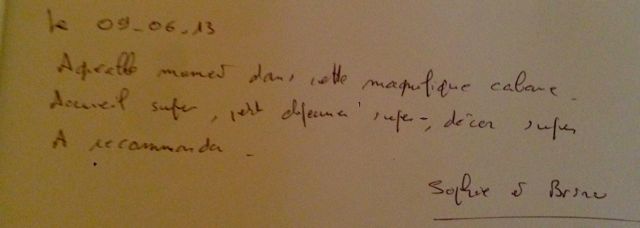 le 09-06-13
Agréable moment dans cette magnifique cabane.
Accueil super, petit déjeuner super, décor super
A recommander.
Sophie et Bruno